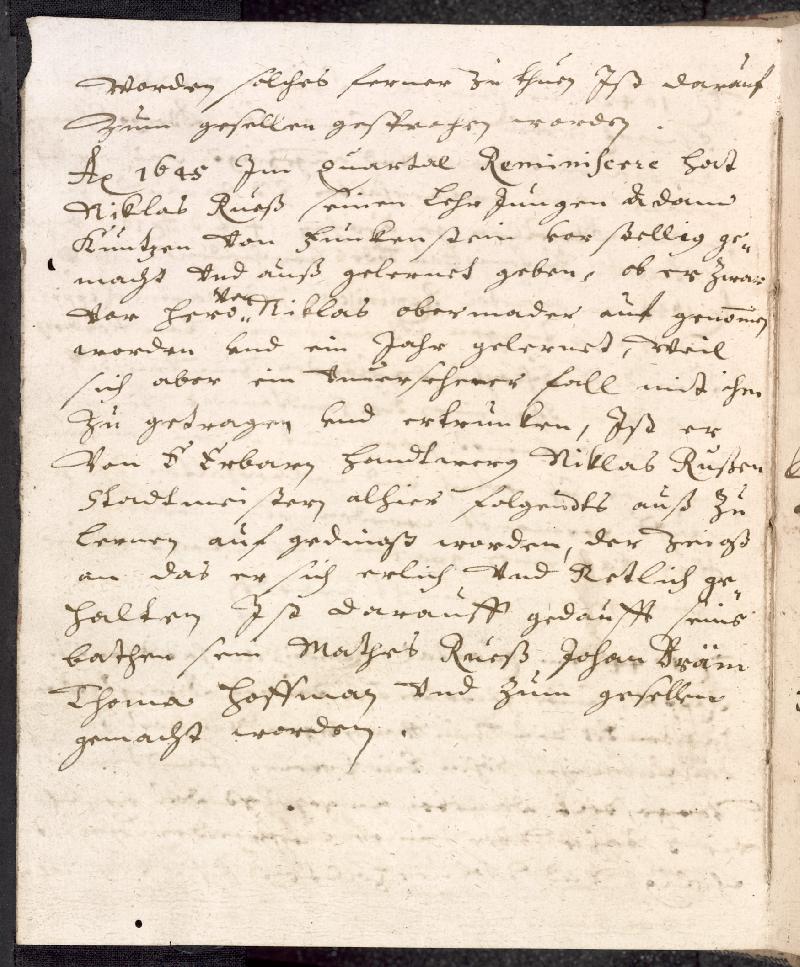 worden solches ferner zu thuen Ist darauf
zum gesellen gesprochen worden.
Ao 1645 Im quartal Reminiscere hat
Niklas Rueß seinen Lehr Jungen Adam
Kuntzen von Funkenstein vorstellig ge„
macht vnd auß gelernet geben, ob er zwar
vor hero von Niklas obermader auf genomen
worden vnd ein Jahr gelernet, weil
sich aber ein vnuersehener fall mit ihm
zu getragen vnd ertrunken, Ist er
von E Erbarn handtwerg Niklas Rußen
Stadtmeistern alhier folgendts auß zu
lernen auf gedingt worden, der zeigt
an das er sich erlich vnd Retlich ge„
halten Ist darauff gedaufft seine
bathen sein Mathes Rueß Johan Bräm
Thoma hoffman vnd zum gesellen
gemacht worden.